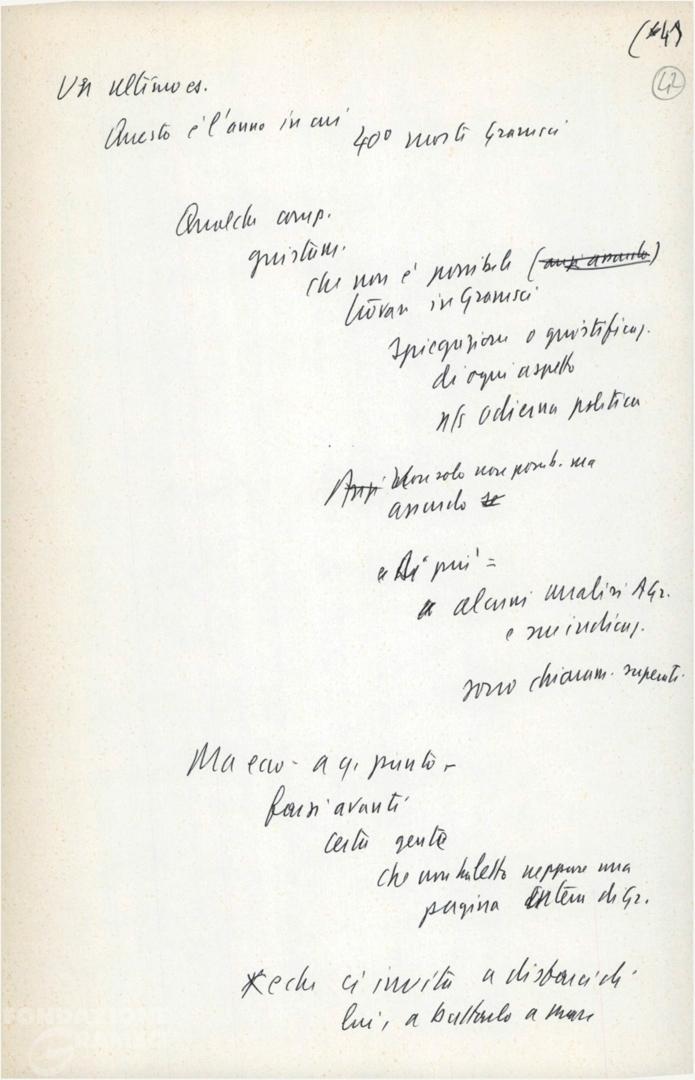 (*4)
42
Un ultimo es.
Questo è l'anno in cui 40° morte Gramsci
Qualche comp.
giustam.
che non è possibile (anzi assurdo)
trovare in Gramsci
spiegazione o giustificaz.
di ogni aspetto
n/s odierna politica
Anzi Non solo non possib. ma
assurdo se
e di più =
alcuni analisi AGr.
e sue indicaz.
sono chiaram. superate.
Ma ecco - a q. punto -
farsi avanti
certa gente
che non ha letto neppure una
pagina intera di Gr.
e che ci invita a disfarci di
lui, a buttarlo a mare
FONDAZIONE